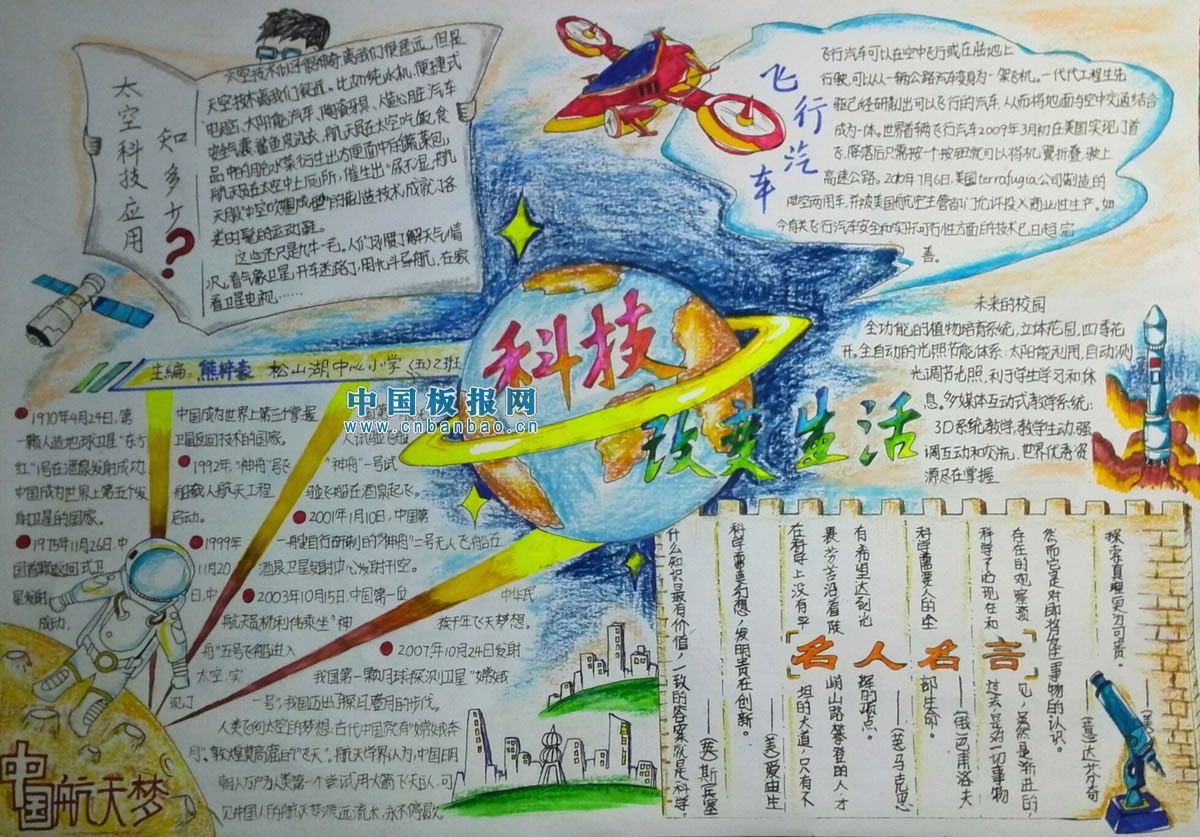 太空科技应用
知多少?
太空技术似乎很神奇离我们很遥远,但是
天空技术离我们很近。比如纯水机,便捷式
电脑,太阳能汽车,陶瓷牙具,人造心脏,汽车
安全气囊,鲨鱼皮泳衣,航天员在太空吃饭,食
品中的脱水菜衍生出方便面中的蔬菜包,
航天员在太空中上厕所,催生出“尿不湿”,航
天服“中空吹塑成把”的制造技术成就了各
类时髦的运动鞋。
这些还只是九牛一毛。人们办展了解天气情
况,看气象卫星,开车迷路了,用北斗导航,在家
看卫星电视……
飞行汽车
飞行汽车可以在空中飞行或在陆地上
行驶,可以从一辆公路汽车变身为一架飞机。一代代工程生先
驱已经研制出可以飞行的汽车,从而将地面与空中交通结合
成为一体。世界首辆飞行汽车2009年3月初在美国实现了首
飞,降落后只需按一个按钮就可以将机翼折叠,驶上
高速公路。2010年7月6日,美国terrafugia公司制造的
陆空两用车,并被美国航空主管部门允许投入商业性生产。如
今有关飞行汽车安全和实用可行性方面的技术已日趋完
善。
主编:熊梓豪 松山湖中心小学(五)2班
科技
改变生活
中国板报网
www.cnbanbao.cn
未来的校园
全功能的植物培育系统,立体花园,四季花
开。全自动的光照节能体系:太阳能利用,自动测
光调节光照,利于学生学习和休
息。多媒体互动式教学系统:
3D系统教学,教学生动,强
调互动和交流,世界优秀资
源尽在掌握
1970年4月24日,第
一颗人造地球卫星“东方
红”1号在酒泉发射成功
中国成为世界上第五个发
射卫星的国家。
1975年11月26日,中
国首颗返回式卫
星发射
成功,
中国成为世界上第三个掌握
卫星返回技术的国家。
1992年“神舟”号飞
船载人航天工程
启动。
1999年
11月20
日,中
人试验飞船
“神舟”一号试
验飞船在酒泉起飞。
2001年1月10日,中国第
一艘自行研制的“神舟”二号无人飞船在
酒泉卫星发射中心发射升空。
2003年10月15日,中国第一位
航天员杨利伟乘坐“神
舟”五号飞船进入
太空,实
现了
中华民
族千年飞天梦想。
2007年10月24日发射
我国第一颗月球探测卫星“嫦娥
一号”,我国迈出了探月登月的步伐。
人类飞向太空的梦想:古代中国就有“嫦娥奔
月”、敦煌莫高窟的“飞天”。航天学界认为,中国明
朝人万户为人类第一个尝试用火箭飞天的人,可
见中国人的航天梦源远流长,永不停歇。
中国航天梦
名人名言
探索真理更为可贵。
然而它是对即将发生事物的认识。
存在的观察预见,虽然是渐进的,
科学不论现在和过去,是对一切事物
——(意)达·芬奇
科学需要人的全部生命。
——(俄)巴甫洛夫
有希望达到光辉的顶点。
畏劳苦沿着陡峭山路攀登的人,才
在科学上没有平坦的大道,只有不
——(英)马克思
科学需要幻想,发明贵在创新。
——(美)爱迪生
什么知识最有价值,一致的答案就是科学。
——(英)斯宾塞